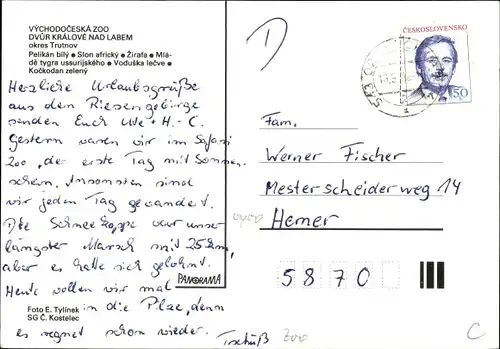 VÝCHODOČESKÁ ZOO
DVŮR KRÁLOVÉ NAD LABEM
okres Trutnov
Pelikán bílý • Slon africký • Žirafa • Mlá-
dě tygra ussurijského • Voduška lečve •
Kočkodan zelený
Herzliche Urlaubsgrüße
aus dem Riesengebirge
senden Euch Uwe + H.-C.
Gestern waren wir im Safari
Zoo, der erste Tag mit Sonnen-
schein. Ansonsten sind
wir jeden Tag gewandert.
Die Schneekoppe war unser
längster Marsch mit 25 km,
aber es hatte sich gelohnt.
Heute wollen wir mal
in die Pilze, denn
es regnet schon wieder.
Tschüß
PANORAMA
Foto E. Tylínek
SG Č. Kostelec
D
ČESKOSLOVENSKO
50
Fam.
Werner Fischer
Mesterscheiderweg 14
Hemer
5870
Zoo
C